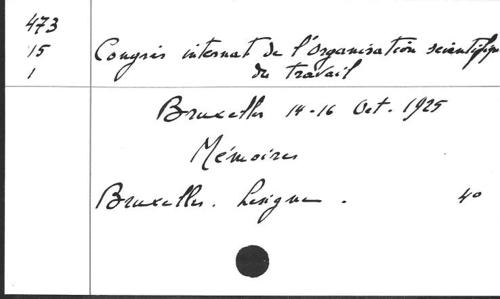 473
15
1
Congrès internat de l'Organisation scientifique
du travail
Bruxelles 14-16 Oct. 1925
Mémoires
Bruxelles. Lesigne. 4º